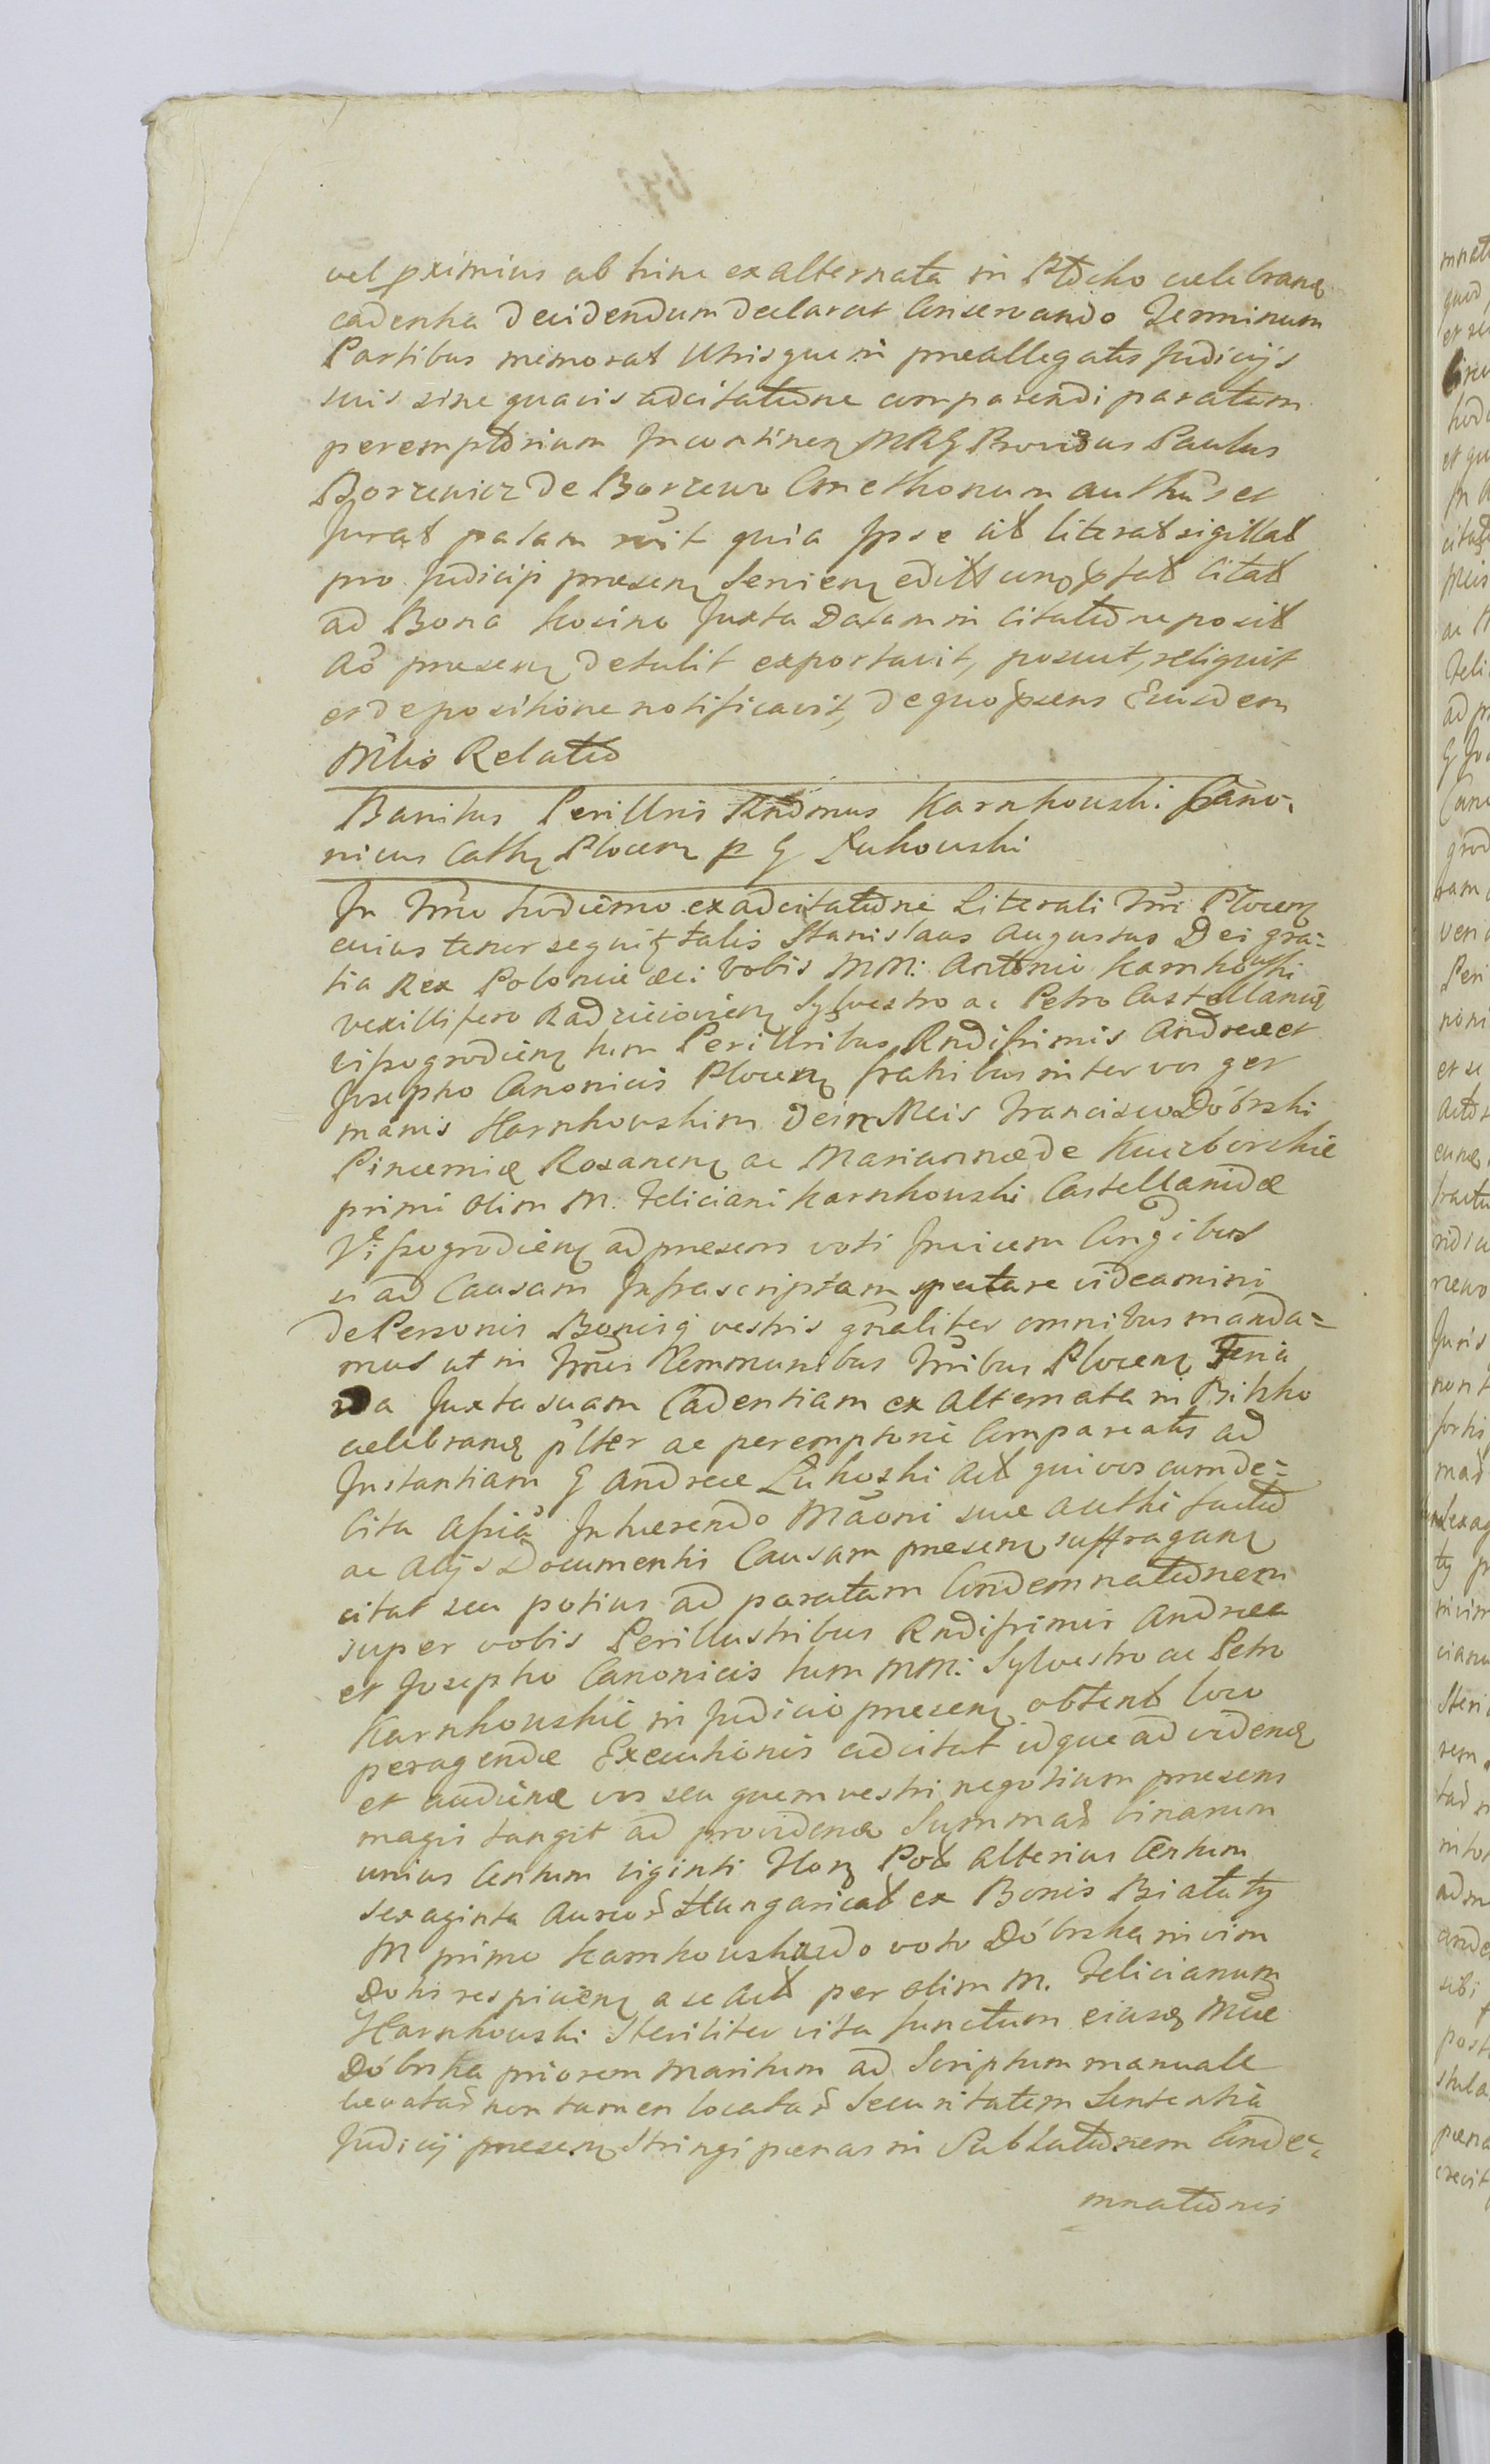 vel pximius ab hinc ex alternata in Płocko celebranȩ
cadentia decidendum declarat Conservando Terminum
Partibus memorat Utrisque in preallegatis Judicijs
suis sine quavis adcitatione comparendi paratum
peremptorium Incontinen MRG Providus Paulus
Borzewicz de Borzewo Cmethonum authus et
Jurat palam rcuit quia Ipse cit literat sigillat
pro Judicijs presen Servien edit ptat Citat
ad Bona Kosino Juxta Datam in Citatione posit
Ao presen detulit exportavit, posuit, reliquit
et depositione notificavit, de quo psens Eiusdem
Mlis Relatio
Banitus Perillris Rndmus Karnkowski Cano-
nicus Cath Plocen p G Łukowski
In Tmno hodierno ex adcitatione Literali Tri Plocen
cuius tenor sequit talis Stanislaus Augustus Dei gra=
tia Rex Poloniæ &c: Vobis MM: Antonio Karnkowski
vexillifero Radzieiovien Sylvestro ac Petro Castellanis
vissogrodien tum Perillribus Rndissimis Andreæ et
Josepho Canonicis Plocen fratribus inter vos ger
manis Karnkowskim dein Mcis Francisco Dóbrski
Pincernæ Rozanen ac Mariannæ de Kuczborskie
primi olim M. Feliciani Karnkowski Castellanidæ
Vissogrodien ad presens voti Invicem Congibus
si ad Causam Infrascriptam spectare videamini
de Personis Bonisq vestris gnaliter omnibus manda=
mus ut in Tmis Communibus Tribus Plocen Feria
2da Juxta suam Cadentiam ex Alternata in Bitzko
celebranȩ plter ac peremptorie Compareatis ad
Instantiam G Andreæ Łukoski Act qui vos cum de=
bita Assia Inhærendo Maoni suæ authi factæ
ac Alijs Documentis Causam presen suffragan
citat seu potius ad paratam Condemnationem
super vobis Perillustribus Rndissimis Andreæ
et Josepho Canonicis tum MM: Sylvestro ac Petro
Karnkowskie in Judicio presen obtent loco
peragendæ Executionis adcitat idque ad videnȩ
et audiendæ vos seu quem vestri negotium presens
magis tangit ad providenȩ Summas binarum
unius Centum viginti Flor Pol alterius Centum
sexaginta Aureos Hungaricat ex Bonis Białuty
M primo Karnkowska 2do voto Dóbrska in vim
Dotis respicien a se Act per olim M. Felicianum
Karnkowski Steriliter vita functum eiusȩ Mcæ
Dóbrska priorem Maritum ad Scriptum manuale
levatas non tamen locatas Securitatem Sententia
Judicij presen Stringi pœnas in Sublationem Conde=
mnationis